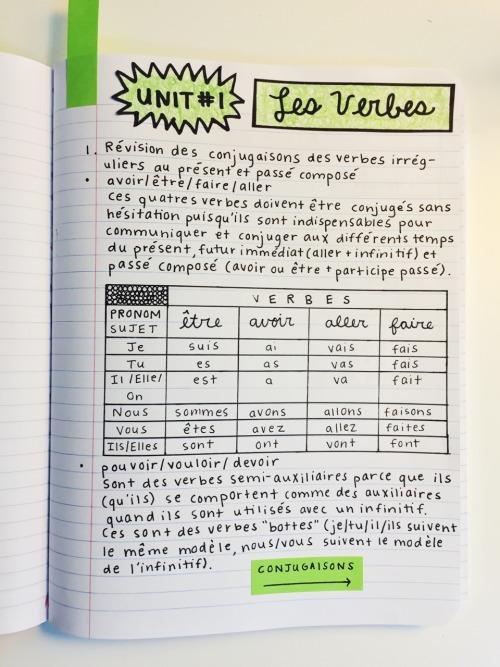 UNIT #1
Les Verbes
1. Révision des conjugaisons des verbes irrég-
uliers au présent et passé composé
• avoir/être/faire/aller
Ces quatres verbes doivent être conjugés sans
hésitation puisqu'ils sont indispensables pour
communiquer et conjuger aux différents temps
du présent, futur immédiat (aller + infinitif) et
passé composé (avoir ou être + participe passé).
VERBES
PRONOM SUJET être avoir aller faire
Je suis ai vais fais
Tu es as vas fais
Il/Elle/On est a va fait
Nous sommes avons allons faisons
Vous êtes avez allez faites
Ils/Elles sont ont vont font
• pouvoir/vouloir/devoir
Sont des verbes semi-auxiliaires parce que ils
(qu'ils) se comportent comme des auxiliaires
quand ils sont utilisés avec un infinitif.
Ces sont des verbes "bottes" (je/tu/il/ils suivent
le même modèle, nous/vous suivent le modèle
de l'infinitif).
CONJUGAISONS